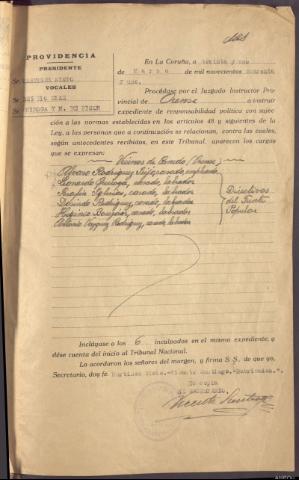 PROVIDENCIA
PRESIDENTE
VOCALES
En La Coruña, a treinta y uno
de Marzo de mil novecientos cuarenta
y uno.
Procédase por el Juzgado Instructor Pro-
vincial de Orense a instruir
expediente de responsabilidad política con sujec-
ión a las normas establecidas en los artículos 45 y siguientes de la
Ley, a las personas que a continuación se relacionan, contra las cuales,
según antecedentes recibidos, en este Tribunal, aparecen los cargos
que se expresan:
(Orense)
Alvaro Rodriguez casado, empleado
Leonardo casado, labrador
casado, labrador
Delmiro Rodriguez, casado, labrador
Higinio casado, labrador
Antonio Vazquez Rodriguez, casado, labrador
Directivos
del Frente
Popular
Inclúyase a los 6 inculpados en el mismo expediente, y
dése cuenta del inicio al Tribunal Nacional.
Lo acordaron los señores del margen, y firma S. S. de que yo,
Secretario, doy fe Santiago.-Rubricados.".
Es copia
EL SECRETARIO,